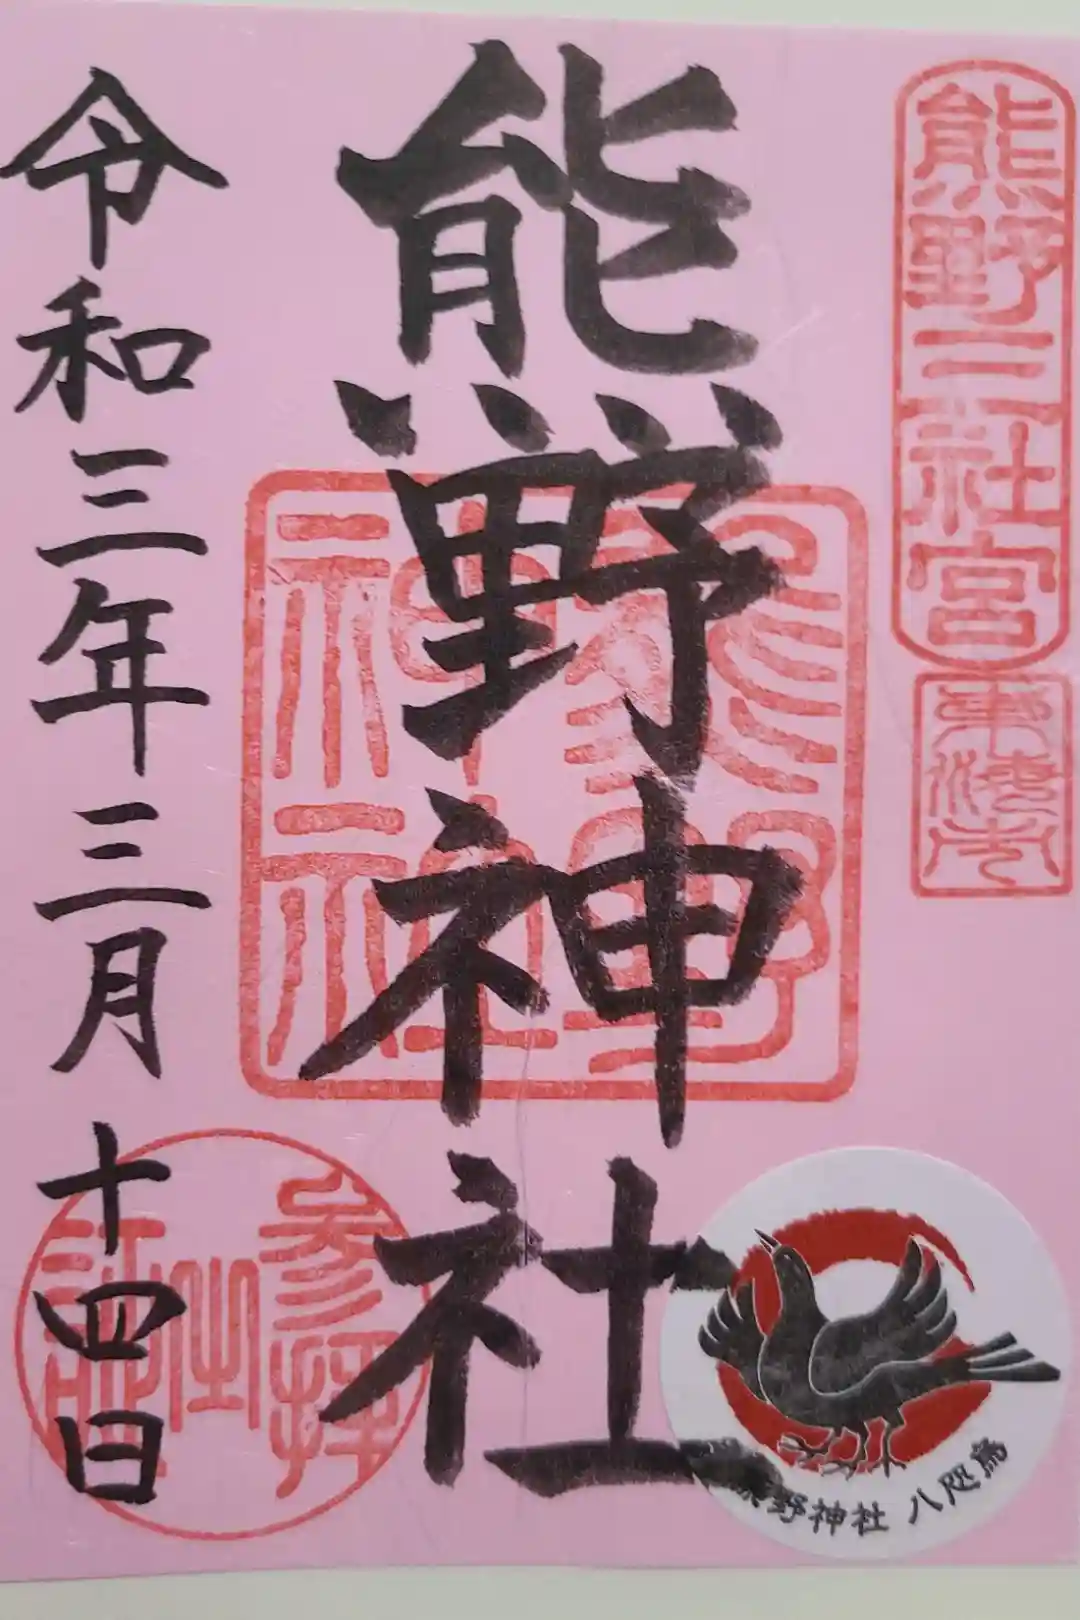 熊野三社宮
熊野神社
熊野
神社
令和三年三月十四日
参拝
之
証
熊野神社 八咫烏